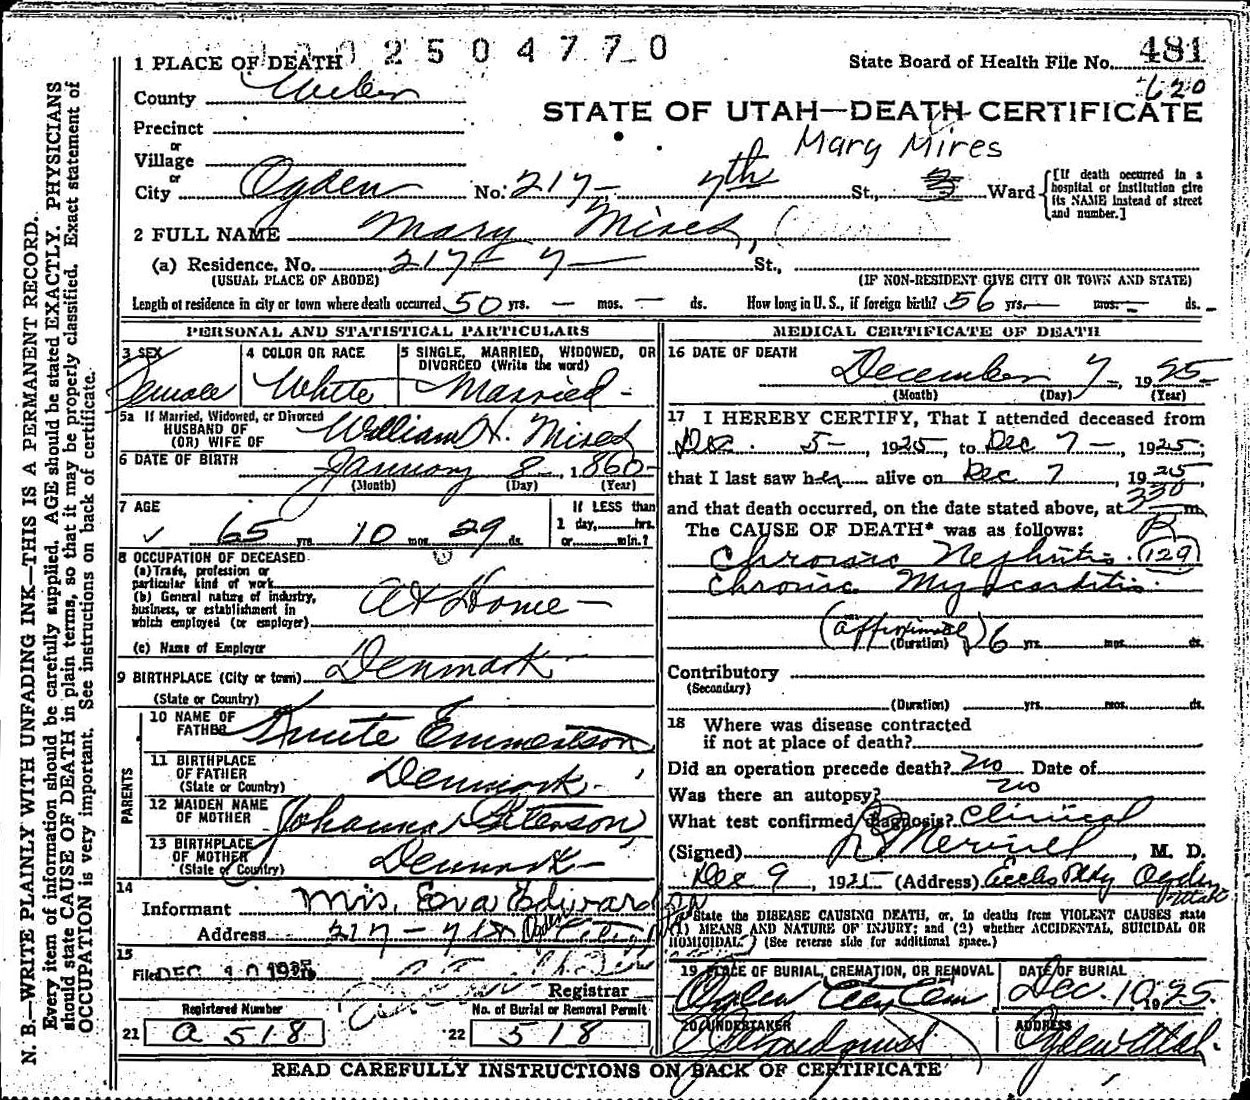 0 0 2 5 0 4 7 7 0
State Board of Health File No. 481
620
STATE OF UTAH—DEATH CERTIFICATE
Mary Mires
1 PLACE OF DEATH
County Weber
Precinct
or
Village
or
City Ogden No. 217 - 7th St., Ward
[If death occurred in a
hospital or institution give
its NAME instead of street
and number.]
2 FULL NAME Mary Mires,
(a) Residence. No. 217 - 7 — St.,
(USUAL PLACE OF ABODE) (IF NON-RESIDENT GIVE CITY OR TOWN AND STATE)
Length of residence in city or town where death occurred 50 yrs. — mos. — ds. How long in U. S., if foreign birth? 56 yrs. — mos. — ds. -
PERSONAL AND STATISTICAL PARTICULARS
3 SEX
Female
4 COLOR OR RACE
White
5 SINGLE, MARRIED, WIDOWED, OR
DIVORCED (Write the word)
Married -
5a If Married, Widowed, or Divorced
HUSBAND OF
(OR) WIFE OF William H. Mires
6 DATE OF BIRTH January 8, 1860-
(Month) (Day) (Year)
7 AGE
65 yrs. 10 mos. 29 ds.
If LESS than
1 day, hrs.
or min.?
8 OCCUPATION OF DECEASED
(a) Trade, profession or
particular kind of work
(b) General nature of industry,
business, or establishment in
which employed (or employer)
At Home —
(c) Name of Employer
9 BIRTHPLACE (City or town) Denmark
(State or Country)
PARENTS
10 NAME OF
FATHER Knute Emmertson
11 BIRTHPLACE
OF FATHER
(State or Country) Denmark -
12 MAIDEN NAME
OF MOTHER Johanna Peterson
13 BIRTHPLACE
OF MOTHER
(State or Country) Denmark -
14
Informant Mrs. Eva Edwards
Address 217 - 7th Ogden
15
Filed DEC 10 1925
Registrar
Registered Number
21 a 518
No. of Burial or Removal Permit
22 518
MEDICAL CERTIFICATE OF DEATH
16 DATE OF DEATH
December 7, 1925
(Month) (Day) (Year)
17 I HEREBY CERTIFY, That I attended deceased from
Dec. 5-, 1925, to Dec 7 -, 1925;
that I last saw her alive on Dec 7, 1925
and that death occurred, on the date stated above, at 330 P m.
The CAUSE OF DEATH* was as follows:
Chronic Nephritis. (129)
Chronic Myocarditis.
(approximately) 6 yrs. mos. ds.
(Duration)
Contributory
(Secondary)
(Duration) yrs. mos. ds.
18 Where was disease contracted
if not at place of death?
Did an operation precede death? no Date of
Was there an autopsy? no
What test confirmed diagnosis? Clinical
(Signed) Merrill, M. D.
Dec 9, 1925 (Address) Eccles Bldg Ogden
Utah
*State the DISEASE CAUSING DEATH, or, in deaths from VIOLENT CAUSES state
(1) MEANS AND NATURE OF INJURY; and (2) whether ACCIDENTAL, SUICIDAL OR
HOMICIDAL. (See reverse side for additional space.)
19 PLACE OF BURIAL, CREMATION, OR REMOVAL
Ogden City Cem
DATE OF BURIAL
Dec. 10 1925.
20 UNDERTAKER
Lindquist
ADDRESS
Ogden Utah.
READ CAREFULLY INSTRUCTIONS ON BACK OF CERTIFICATE
N. B.—WRITE PLAINLY WITH UNFADING INK—THIS IS A PERMANENT RECORD.
Every item of information should be carefully supplied. AGE should be stated EXACTLY. PHYSICIANS
should state CAUSE OF DEATH in plain terms, so that it may be properly classified. Exact statement of
OCCUPATION is very important. See instructions on back of certificate.